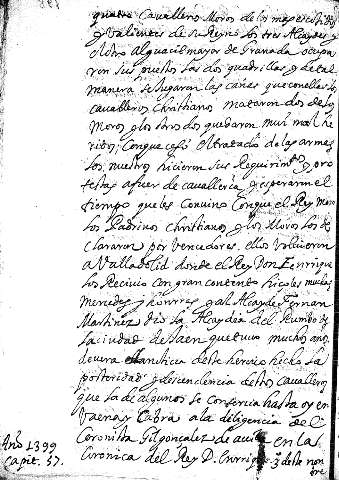 quatro Cavalleros Moros de los mas
y Valientes de su Reyno los tres Alcaydes y
el otro Alguacil mayor de Granada ocupa
ron sus puestos las dos quadrillas y de tal
manera se jugaron las cañas que con ellas los
cavalleros Christianos mataron dos de los
Moros y los otros dos quedaron muy mal he
ridos; Con que cesó el tratado de las armas
los nuestros hicieron sus Requirimtos y pro
testas a fuer de cavalleria y esperaron el
tiempo que les Convino Con que el Rey Moro
los Padrinos Christianos y los Moros los de
clararon por vencedores, ellos volvieron
a Valladolid donde el Rey Don Enrrique
los Recivio con gran contento hicoles muchas
mercedes y honrres y al Alcayde Fernan
Martinez dio la Alcaydia del
la ciudad de Jaen que tuvo muchos años
devera el antica deste heroico hecho la
posteridad y descendencia destos cavalleros
que la de algunos se conserva hasta oy en
Vaena y Cabra a la diligencia del
Coronista Gil gonçalez de avila en la
Coronica del Rey D. Enrrique 3º deste nom
bre
Año 1399
capit. 57.